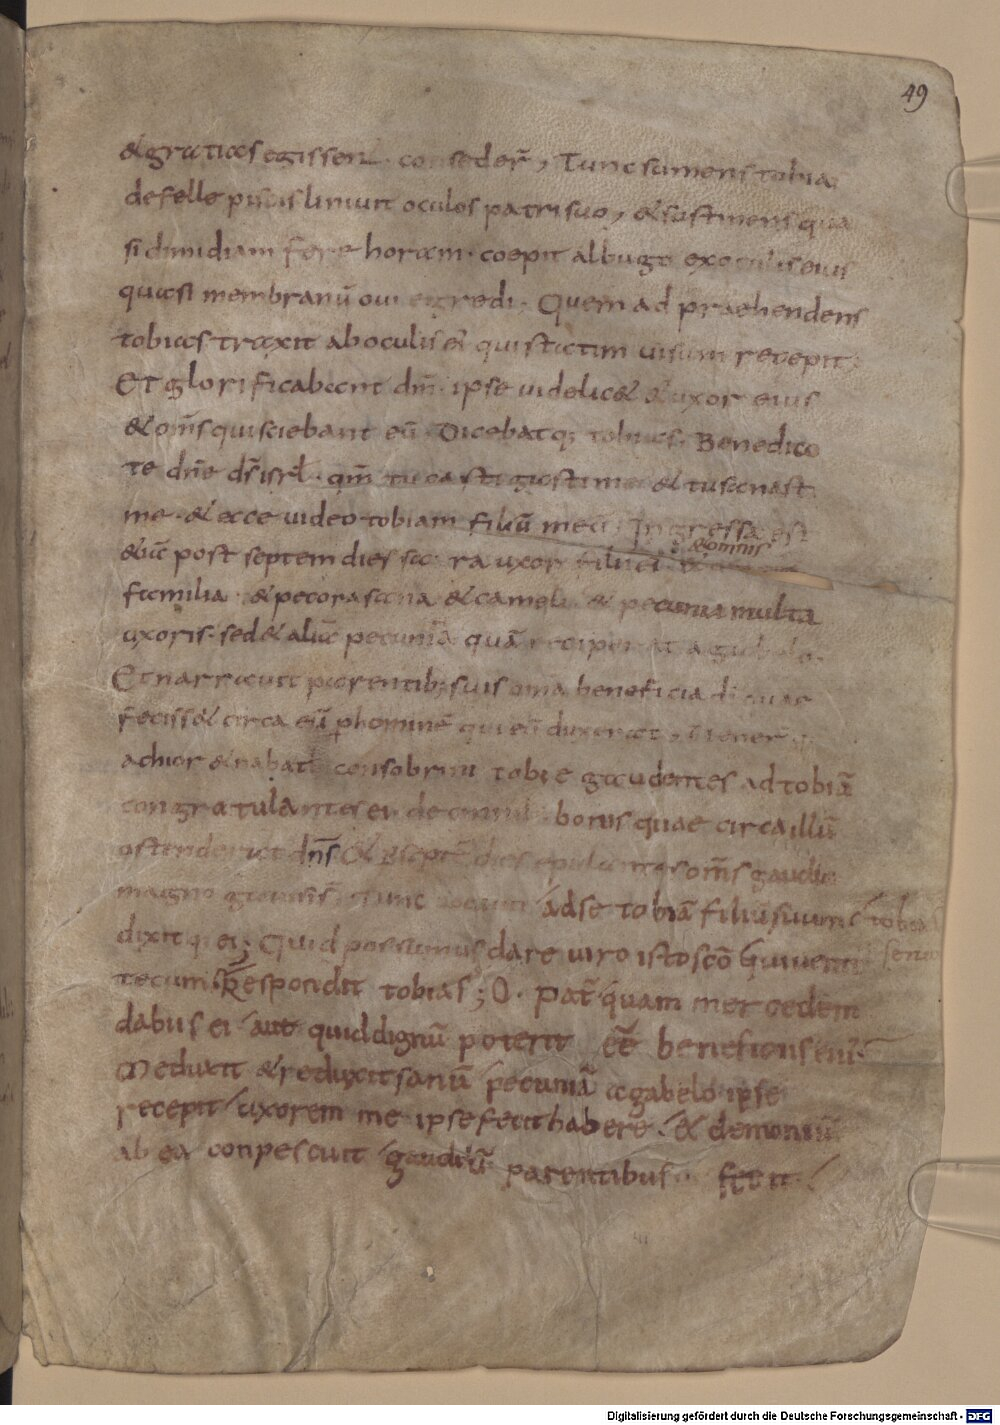 49
& gratias egissent conseder̄, Tunc sumens tobias
de felle piscis liniuit oculos patri suo, & sustinens qua
si dimidiam fere horam. coepit albugo ex oculis eius
quasi membranū oui egredi. Quem adpraehendens
tobias traxit ab oculis ei qui statim uisum recepit;
Et glorificabant dm̄. ipse uidelic& & uxor eius
& om̄s qui sciebant eū. Dicebatq; tobias. Benedico
te dn̄e ds̄ isrl̄. qm̄ tu castigasti me & tu sanasti
me. & ecce uideo tobiam filiū meū; Ingressa est
&iā post septem dies sarra uxor filii ei. & omnis
familia. & pecora sana & cameli. & pecunia multa
uxoris. sed & alia pecunia quā reciperat a gabelo.
Et narrauit parentib; suis om̄a beneficia di quae
feciss& circa eū p hominē qui eū duxerat, uener
achior & nabath consobrini tobie gaudentes ad tobiā
congratulantes ei de omnib; bonis quae circa illū
ostenderat dn̄s. & septē dies epulantes om̄s gaudio
magno gauisi s̄. Tunc uocauit ad se tobiā filiū suum tobias
dixitq; ei; Quid possumus dare uiro isto scō qui uenit senior
tecum. Respondit tobias; O. pat̄ quam mercedem
dabus ei aut quid dignū poterit eē beneficiis eius.
Me duxit & reduxit sanū pecuniā a gabelo ipse
recepit uxorem me ipse fecit habere. & demoniū
ab ea conpescuit gaudiū parentibus fecit.
Digitalisierung gefördert durch die Deutsche Forschungsgemeinschaft - DFG